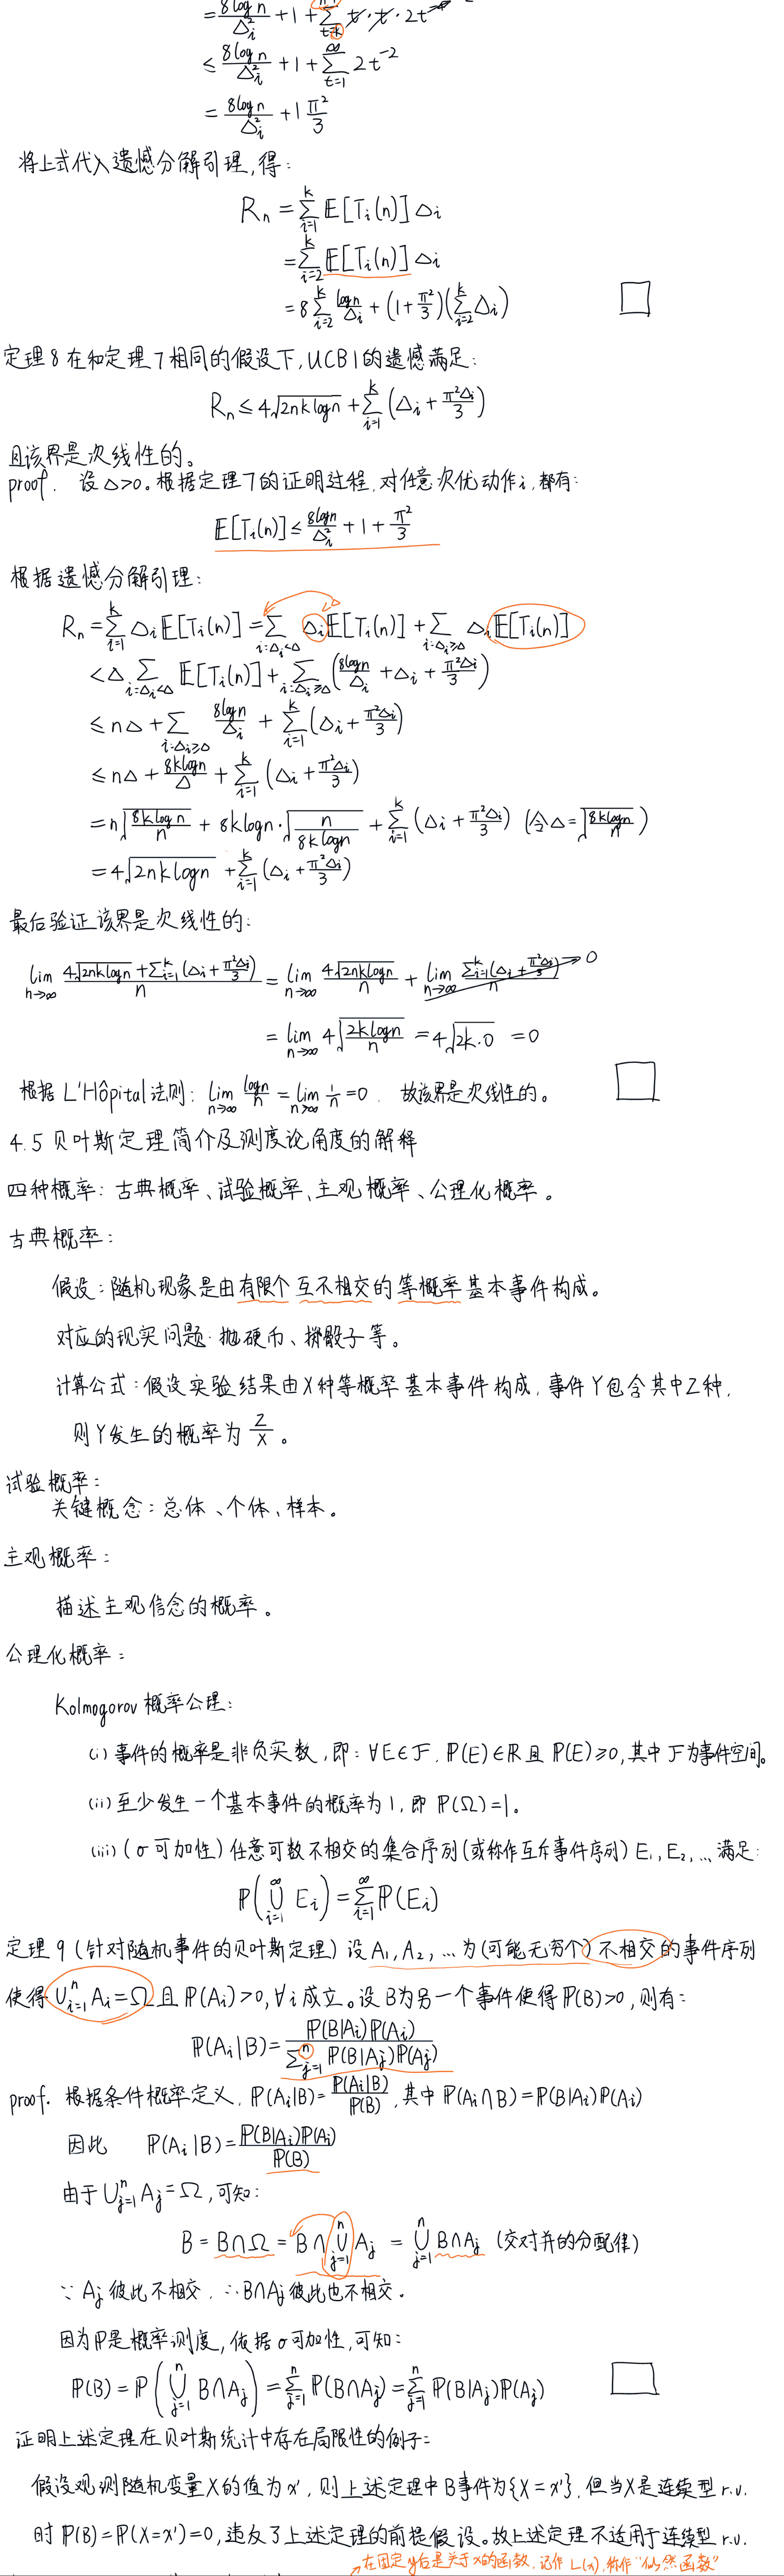 = 8logn/Δi² + 1 + Σ t·t·2t
≤ 8logn/Δi² + 1 + Σ_{t=1}^{∞} 2t⁻²
= 8logn/Δi² + 1 π²/3
将上式代入遗憾分解引理,得:
Rn = Σ_{i=1}^{k} E[Ti(n)]Δi
= Σ_{i=2}^{k} E[Ti(n)]Δi
= 8Σ_{i=2}^{k} logn/Δi + (1+π²/3)(Σ_{i=2}^{k} Δi) □
定理8 在和定理7相同的假设下,UCB1的遗憾满足:
Rn ≤ 4√(2nklogn) + Σ_{i=1}^{k}(Δi + π²Δi/3)
且该界是次线性的。
proof. 设Δ>0。根据定理7的证明过程,对任意次优动作i,都有:
E[Ti(n)] ≤ 8logn/Δi² + 1 + π²/3
根据遗憾分解引理:
<Δ
Rn = Σ_{i=1}^{k} Δi E[Ti(n)] = Σ_{i:Δi<Δ} Δi E[Ti(n)] + Σ_{i:Δi≥Δ} Δi E[Ti(n)]
< Δ Σ_{i:Δi<Δ} E[Ti(n)] + Σ_{i:Δi≥Δ} (8logn/Δi + Δi + π²Δi/3)
≤ nΔ + Σ_{i:Δi≥Δ} 8logn/Δi + Σ_{i=1}^{k}(Δi + π²Δi/3)
≤ nΔ + 8klogn/Δ + Σ_{i=1}^{k}(Δi + π²Δi/3)
= n√(8klogn/n) + 8klogn·√(n/8klogn) + Σ_{i=1}^{k}(Δi + π²Δi/3) (令Δ=√(8klogn/n))
= 4√(2nklogn) + Σ_{i=1}^{k}(Δi + π²Δi/3)
最后验证该界是次线性的:
lim_{n→∞} (4√(2nklogn) + Σ_{i=1}^{k}(Δi + π²Δi/3))/n = lim_{n→∞} 4√(2nklogn)/n + lim_{n→∞} Σ_{i=1}^{k}(Δi + π²Δi/3)/n → 0
= lim_{n→∞} 4√(2klogn/n) = 4√(2k·0) = 0
根据L'Hôpital法则: lim_{n→∞} logn/n = lim_{n→∞} 1/n = 0. 故该界是次线性的。 □
4.5 贝叶斯定理简介及测度论角度的解释
四种概率: 古典概率、试验概率、主观概率、公理化概率。
古典概率:
假设:随机现象是由有限个互不相交的等概率基本事件构成。
对应的现实问题:抛硬币、掷骰子等。
计算公式:假设实验结果由X种等概率基本事件构成,事件Y包含其中Z种,
则Y发生的概率为 Z/X 。
试验概率:
关键概念:总体、个体、样本。
主观概率:
描述主观信念的概率。
公理化概率:
Kolmogorov 概率公理:
(i) 事件的概率是非负实数,即:∀E∈F, P(E)∈R 且 P(E)≥0,其中F为事件空间。
(ii) 至少发生一个基本事件的概率为1,即 P(Ω)=1。
(iii) (σ可加性) 任意可数不相交的集合序列(或称作互斥事件序列) E₁,E₂,… 满足:
P(∪_{i=1}^{∞} Ei) = Σ_{i=1}^{∞} P(Ei)
定理9 (针对随机事件的贝叶斯定理) 设A₁,A₂,…为(可能无穷个)不相交的事件序列
使得 ∪_{i=1}^{n} Ai=Ω 且 P(Ai)>0,∀i成立。设B为另一个事件使得P(B)>0,则有:
P(Ai|B) = P(B|Ai)P(Ai) / Σ_{j=1}^{n} P(B|Aj)P(Aj)
proof. 根据条件概率定义, P(Ai|B) = P(Ai|B)/P(B), 其中 P(Ai∩B) = P(B|Ai)P(Ai)
因此 P(Ai|B) = P(B|Ai)P(Ai)/P(B)
由于 ∪_{j=1}^{n} Aj=Ω,可知:
B = B∩Ω = B∩∪_{j=1}^{n} Aj = ∪_{j=1}^{n} B∩Aj (交对并的分配律)
∵ Aj 彼此不相交, ∴B∩Aj 彼此也不相交.
因为P是概率测度,依据σ可加性,可知:
P(B) = P(∪_{j=1}^{n} B∩Aj) = Σ_{j=1}^{n} P(B∩Aj) = Σ_{j=1}^{n} P(B|Aj)P(Aj) □
证明上述定理在贝叶斯统计中存在局限性的例子:
假设观测随机变量X的值为x′,则上述定理中B事件为{X=x′},但当X是连续型r.v.
时P(B)=P(X=x′)=0,违反了上述定理的前提假设。故上述定理不适用于连续型r.v.
在固定y后是关于x的函数,记作L(x),称作"似然函数"